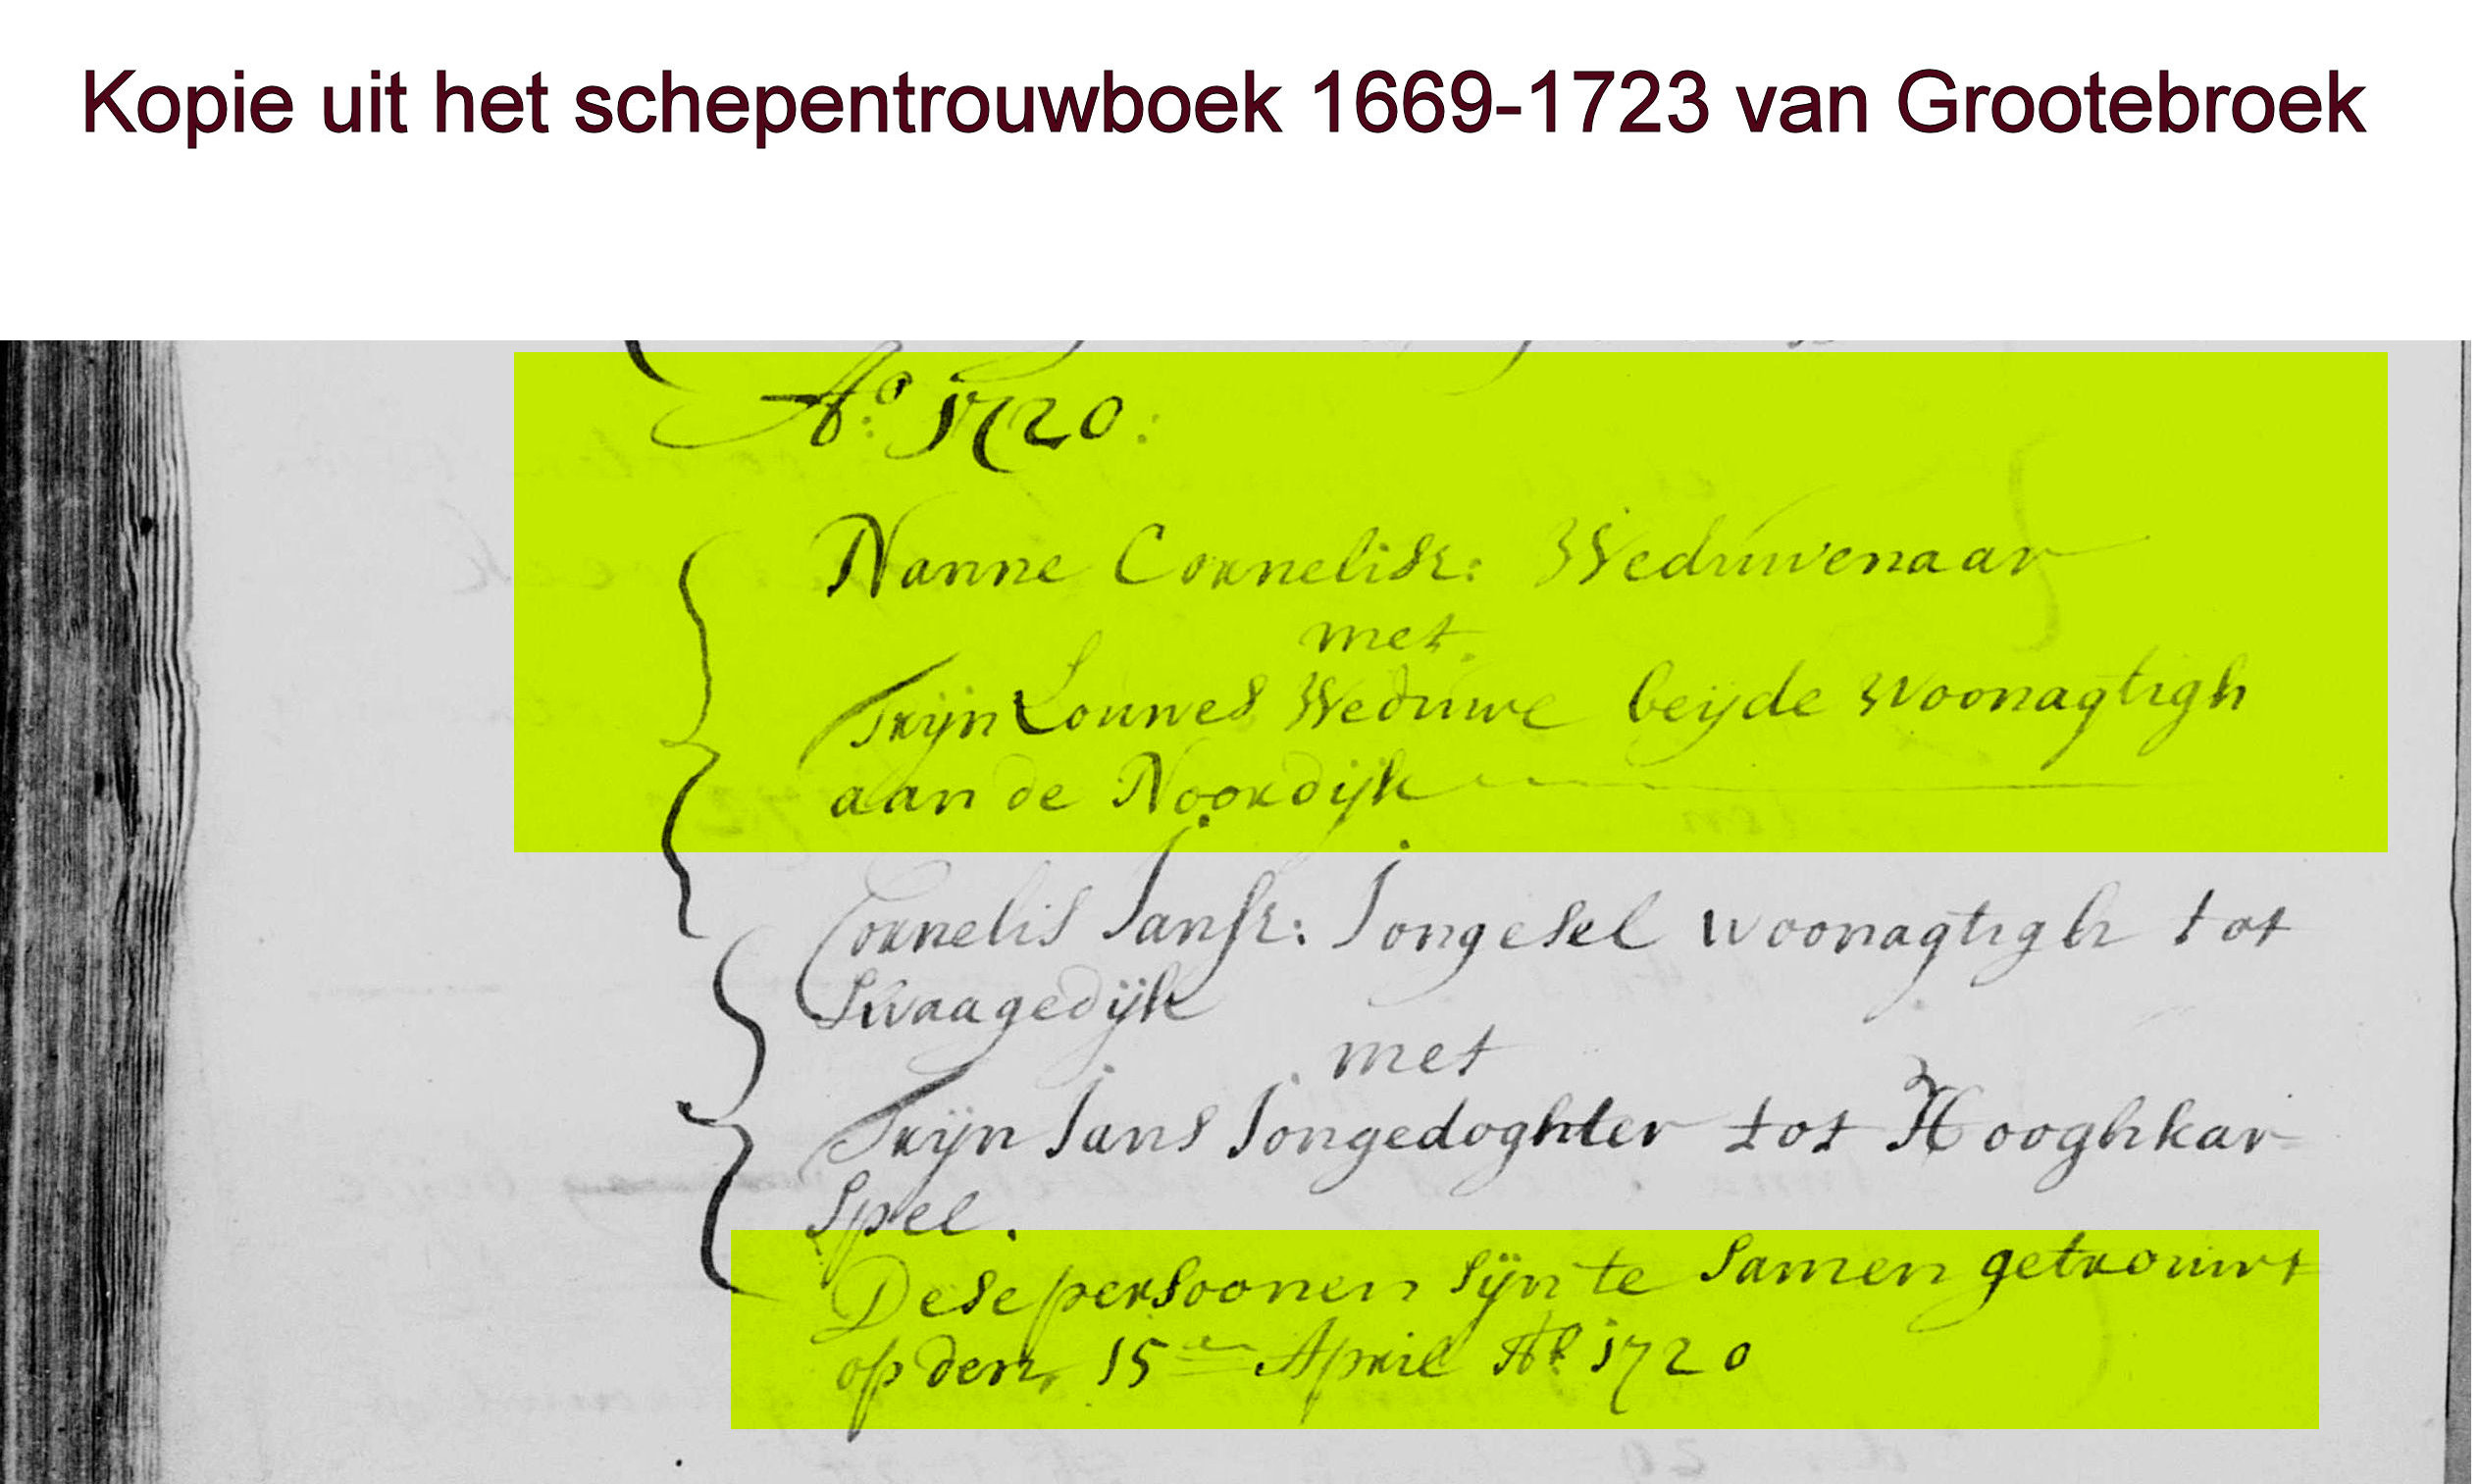 Kopie uit het schepentrouwboek 1669-1723 van Grootebroek
Ao: 1720:
Nanne Cornelisz: Weduwenaar
met
Trijn Louwes Weduwe beijde woonagtigh
aan de Noordijk
Cornelis Jansz: Jongesel woonagtigh tot
Swaagedijk
met
Trijn Jans Jongedoghter tot Hooghkar-
spel.
Dese persoonen sijn te samen getrouwt
op den 15en April Ao 1720